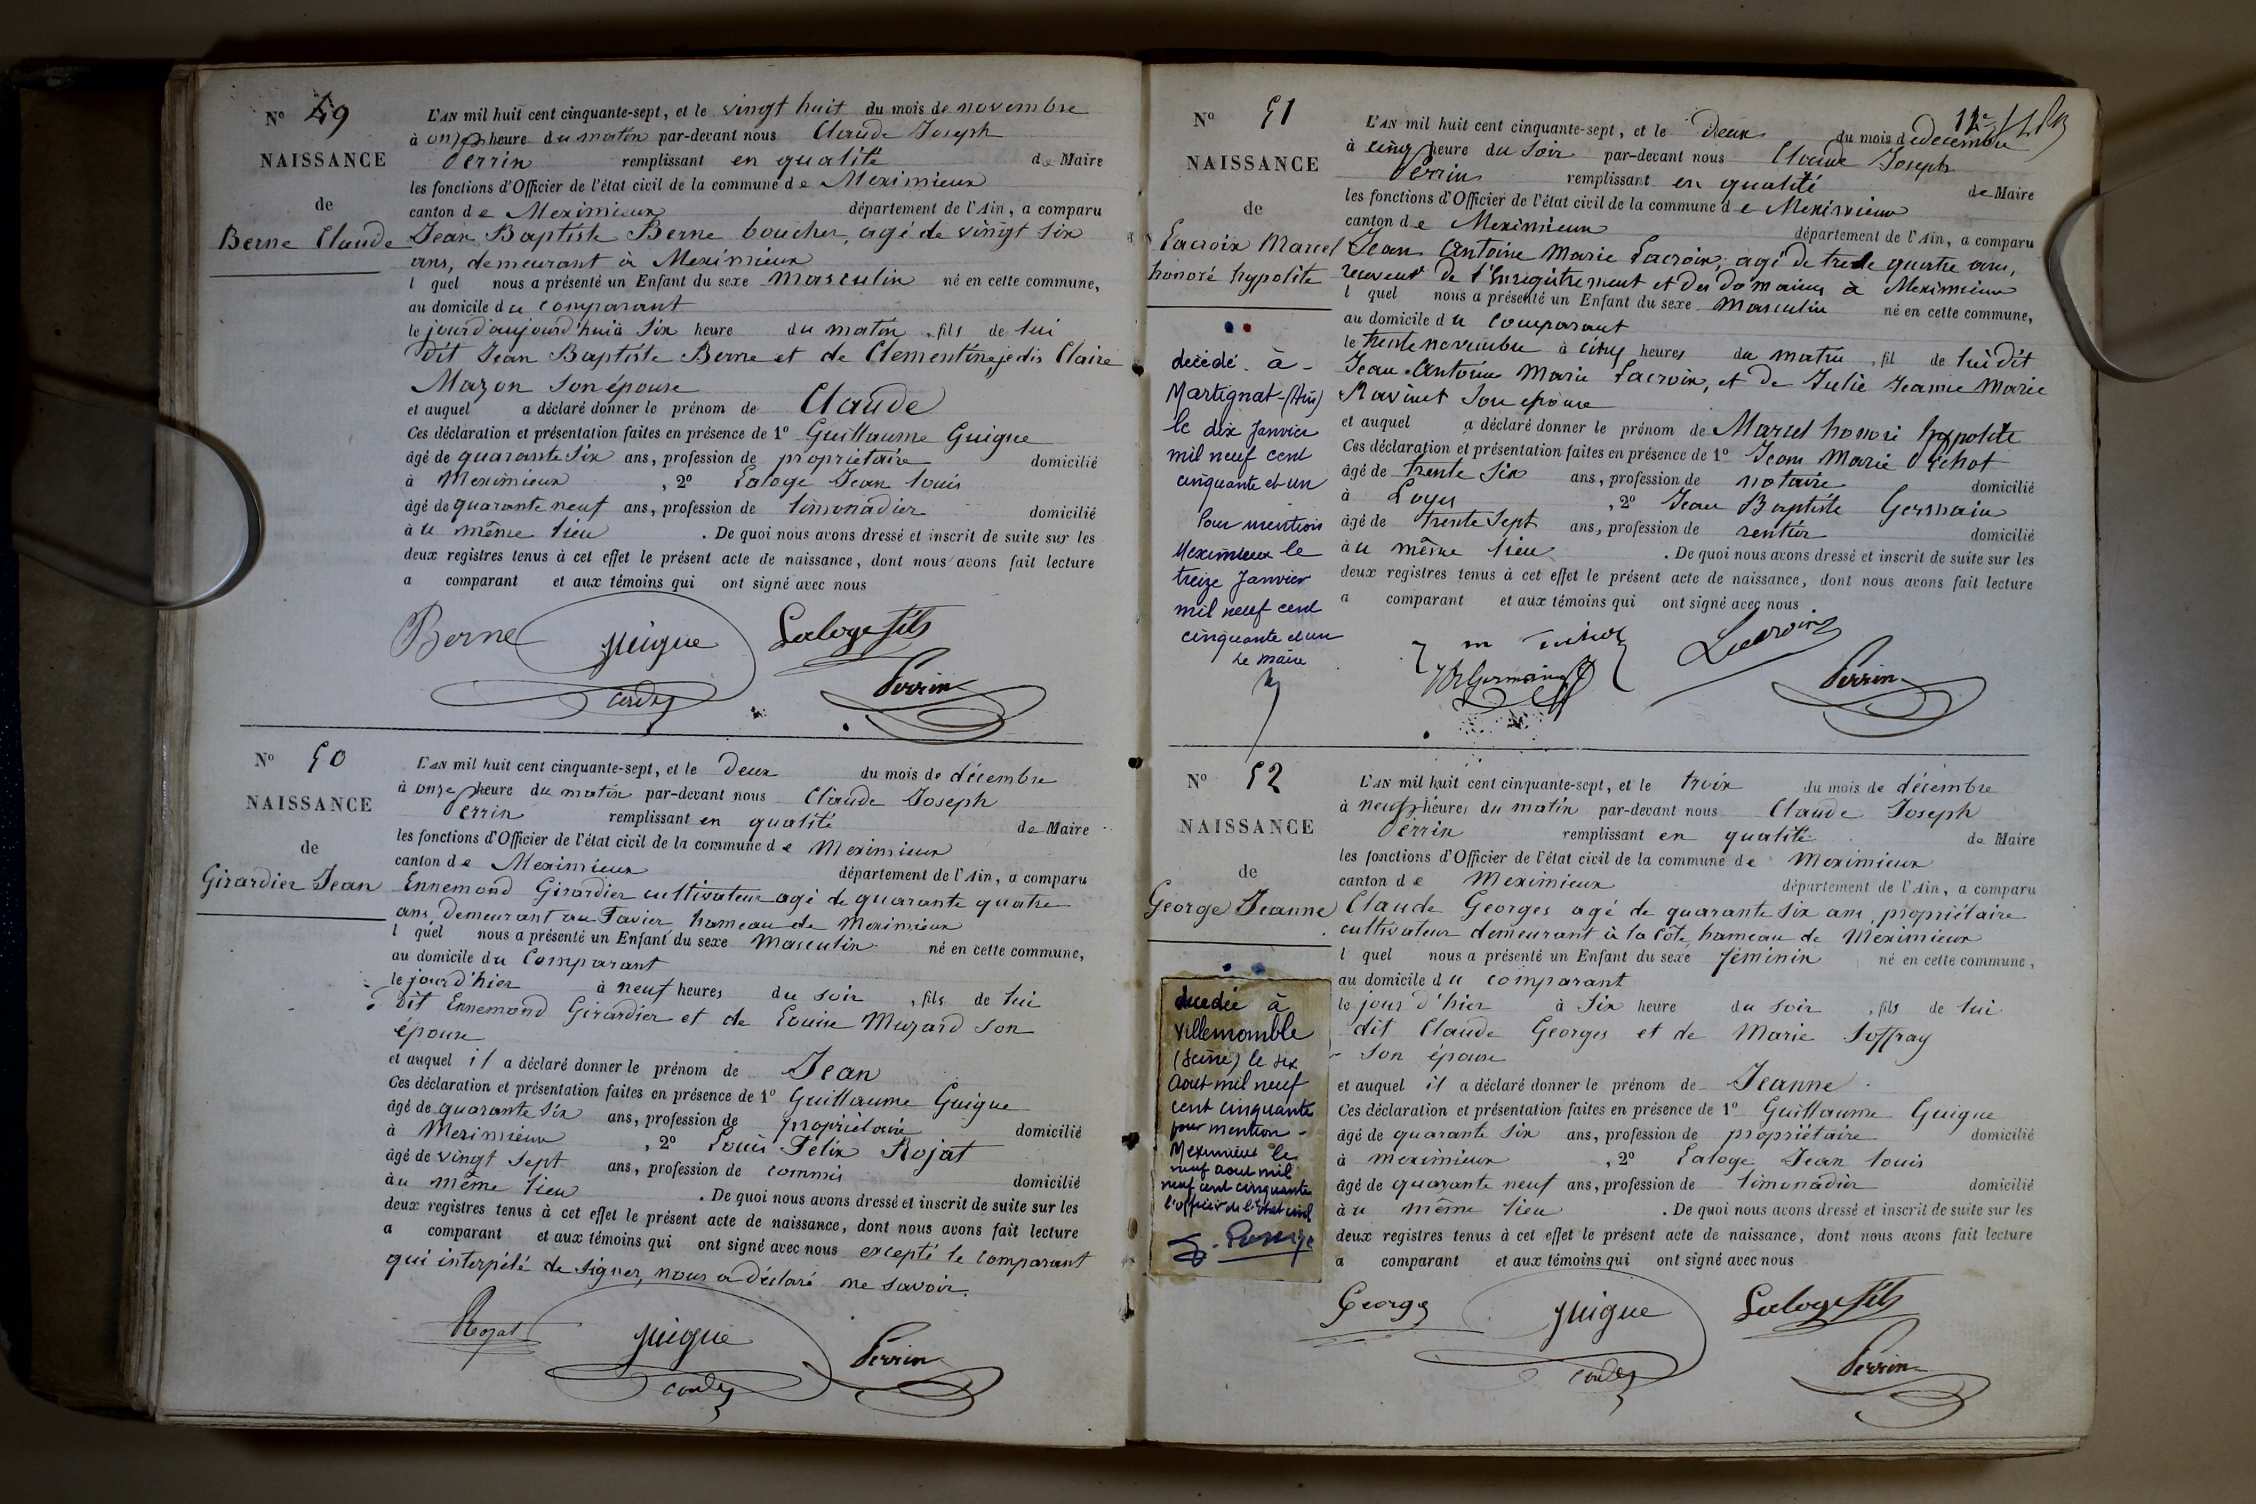 N° 49
NAISSANCE
de
Berne Claude
L'AN mil huit cent cinquante-sept, et le vingt huit du mois de novembre
à onze heure du matin par-devant nous Claude Joseph
Perrin remplissant en qualité de Maire
les fonctions d'Officier de l'état civil de la commune de Meximieux
canton de Meximieux département de l'Ain, a comparu
Jean Baptiste Berne boucher, agé de vingt six
ans, demeurant à Meximieux
l quel nous a présenté un Enfant du sexe masculin né en cette commune,
au domicile du comparant
le jour d'aujourd'hui à six heure du matin, fils de lui
dit Jean Baptiste Berne et de Clementine je dis Claire
Mazon son épouse
et auquel a déclaré donner le prénom de Claude
Ces déclaration et présentation faites en présence de 1° Guillaume Guigue
âgé de quarante six ans, profession de propriétaire domicilié
à Meximieux, 2° Laloge Jean louis
âgé de quarante neuf ans, profession de limonadier domicilié
à u même lieu. De quoi nous avons dressé et inscrit de suite sur les
deux registres tenus à cet effet le présent acte de naissance, dont nous avons fait lecture
a comparant et aux témoins qui ont signé avec nous
Berne Guigue Laloge fils
Perrin
N° 50
NAISSANCE
de
Girardier Jean
L'AN mil huit cent cinquante-sept, et le deux du mois de décembre
à onze heure du matin par-devant nous Claude Joseph
Perrin remplissant en qualité de Maire
les fonctions d'Officier de l'état civil de la commune de Meximieux
canton de Meximieux département de l'Ain, a comparu
Ennemond Girardier cultivateur agé de quarante quatre
ans, demeurant au Tavier hameau de Meximieux
l quel nous a présenté un Enfant du sexe Masculin né en cette commune,
au domicile du Comparant
le jour d'hier à neuf heures du soir, fils de lui
dit Ennemond Girardier et de Louise Muzard son
épouse
et auquel il a déclaré donner le prénom de Jean
Ces déclaration et présentation faites en présence de 1° Guillaume Guigue
âgé de quarante six ans, profession de propriétaire domicilié
à Meximieux, 2° Louis Felix Rojat
âgé de vingt sept ans, profession de commis domicilié
à u même lieu. De quoi nous avons dressé et inscrit de suite sur les
deux registres tenus à cet effet le présent acte de naissance, dont nous avons fait lecture
a comparant et aux témoins qui ont signé avec nous excepté le comparant
qui interpélé de signer, nous a déclaré ne savoir.
Rojat Guigue Perrin
12e
N° 51
NAISSANCE
de
Lacroix Marcel
honoré hypolite
décédé à
Martignat (Ain)
le dix Janvier
mil neuf cent
cinquante et un
Pour mention
Meximieux le
treize Janvier
mil neuf cent
cinquante et un
Le maire
L'AN mil huit cent cinquante-sept, et le Deux du mois de décembre
à cinq heure du soir par-devant nous Claude Joseph
Perrin remplissant en qualité de Maire
les fonctions d'Officier de l'état civil de la commune de Meximieux
canton de Meximieux département de l'Ain, a comparu
Jean Antoine Marie Lacroix, agé de trente quatre ans,
receveur de l'Enregistrement et des domaines à Meximieux
l quel nous a présenté un Enfant du sexe Masculin né en cette commune,
au domicile du comparant
le trente novembre à cinq heures du matin, fil de lui dit
Jean Antoine Marie Lacroix, et de Julie Jeanne Marie
Ravinet son épouse
et auquel a déclaré donner le prénom de Marcel honoré hypolite
Ces déclaration et présentation faites en présence de 1° Jean Marie
âgé de trente six ans, profession de notaire domicilié
à Loyes, 2° Jean Baptiste Germain
âgé de trente sept ans, profession de rentier domicilié
à u même lieu. De quoi nous avons dressé et inscrit de suite sur les
deux registres tenus à cet effet le présent acte de naissance, dont nous avons fait lecture
a comparant et aux témoins qui ont signé avec nous
Lacroix
Germain Perrin
N° 52
NAISSANCE
de
George Jeanne
decedée à
Villemomble
(Seine) le six
Aout mil neuf
cent cinquante
pour mention
Meximieux le
neuf aout mil
neuf cent cinquante
l'officier de l'Etat civil
L'AN mil huit cent cinquante-sept, et le trois du mois de décembre
à neuf heures du matin par-devant nous Claude Joseph
Perrin remplissant en qualité de Maire
les fonctions d'Officier de l'état civil de la commune de Meximieux
canton de Meximieux département de l'Ain, a comparu
Claude Georges agé de quarante six ans, propriétaire
cultivateur demeurant à la Côte, hameau de Meximieux
l quel nous a présenté un Enfant du sexe féminin né en cette commune,
au domicile du comparant
le jour d'hier à six heure du soir, fils de lui
dit Claude Georges et de Marie Joffray
son épouse
et auquel il a déclaré donner le prénom de Jeanne
Ces déclaration et présentation faites en présence de 1° Guillaume Guigue
âgé de quarante six ans, profession de propriétaire domicilié
à meximieux, 2° Laloge Jean louis
âgé de quarante neuf ans, profession de limonadier domicilié
à u même lieu. De quoi nous avons dressé et inscrit de suite sur les
deux registres tenus à cet effet le présent acte de naissance, dont nous avons fait lecture
a comparant et aux témoins qui ont signé avec nous
George Guigue Laloge fils
Perrin